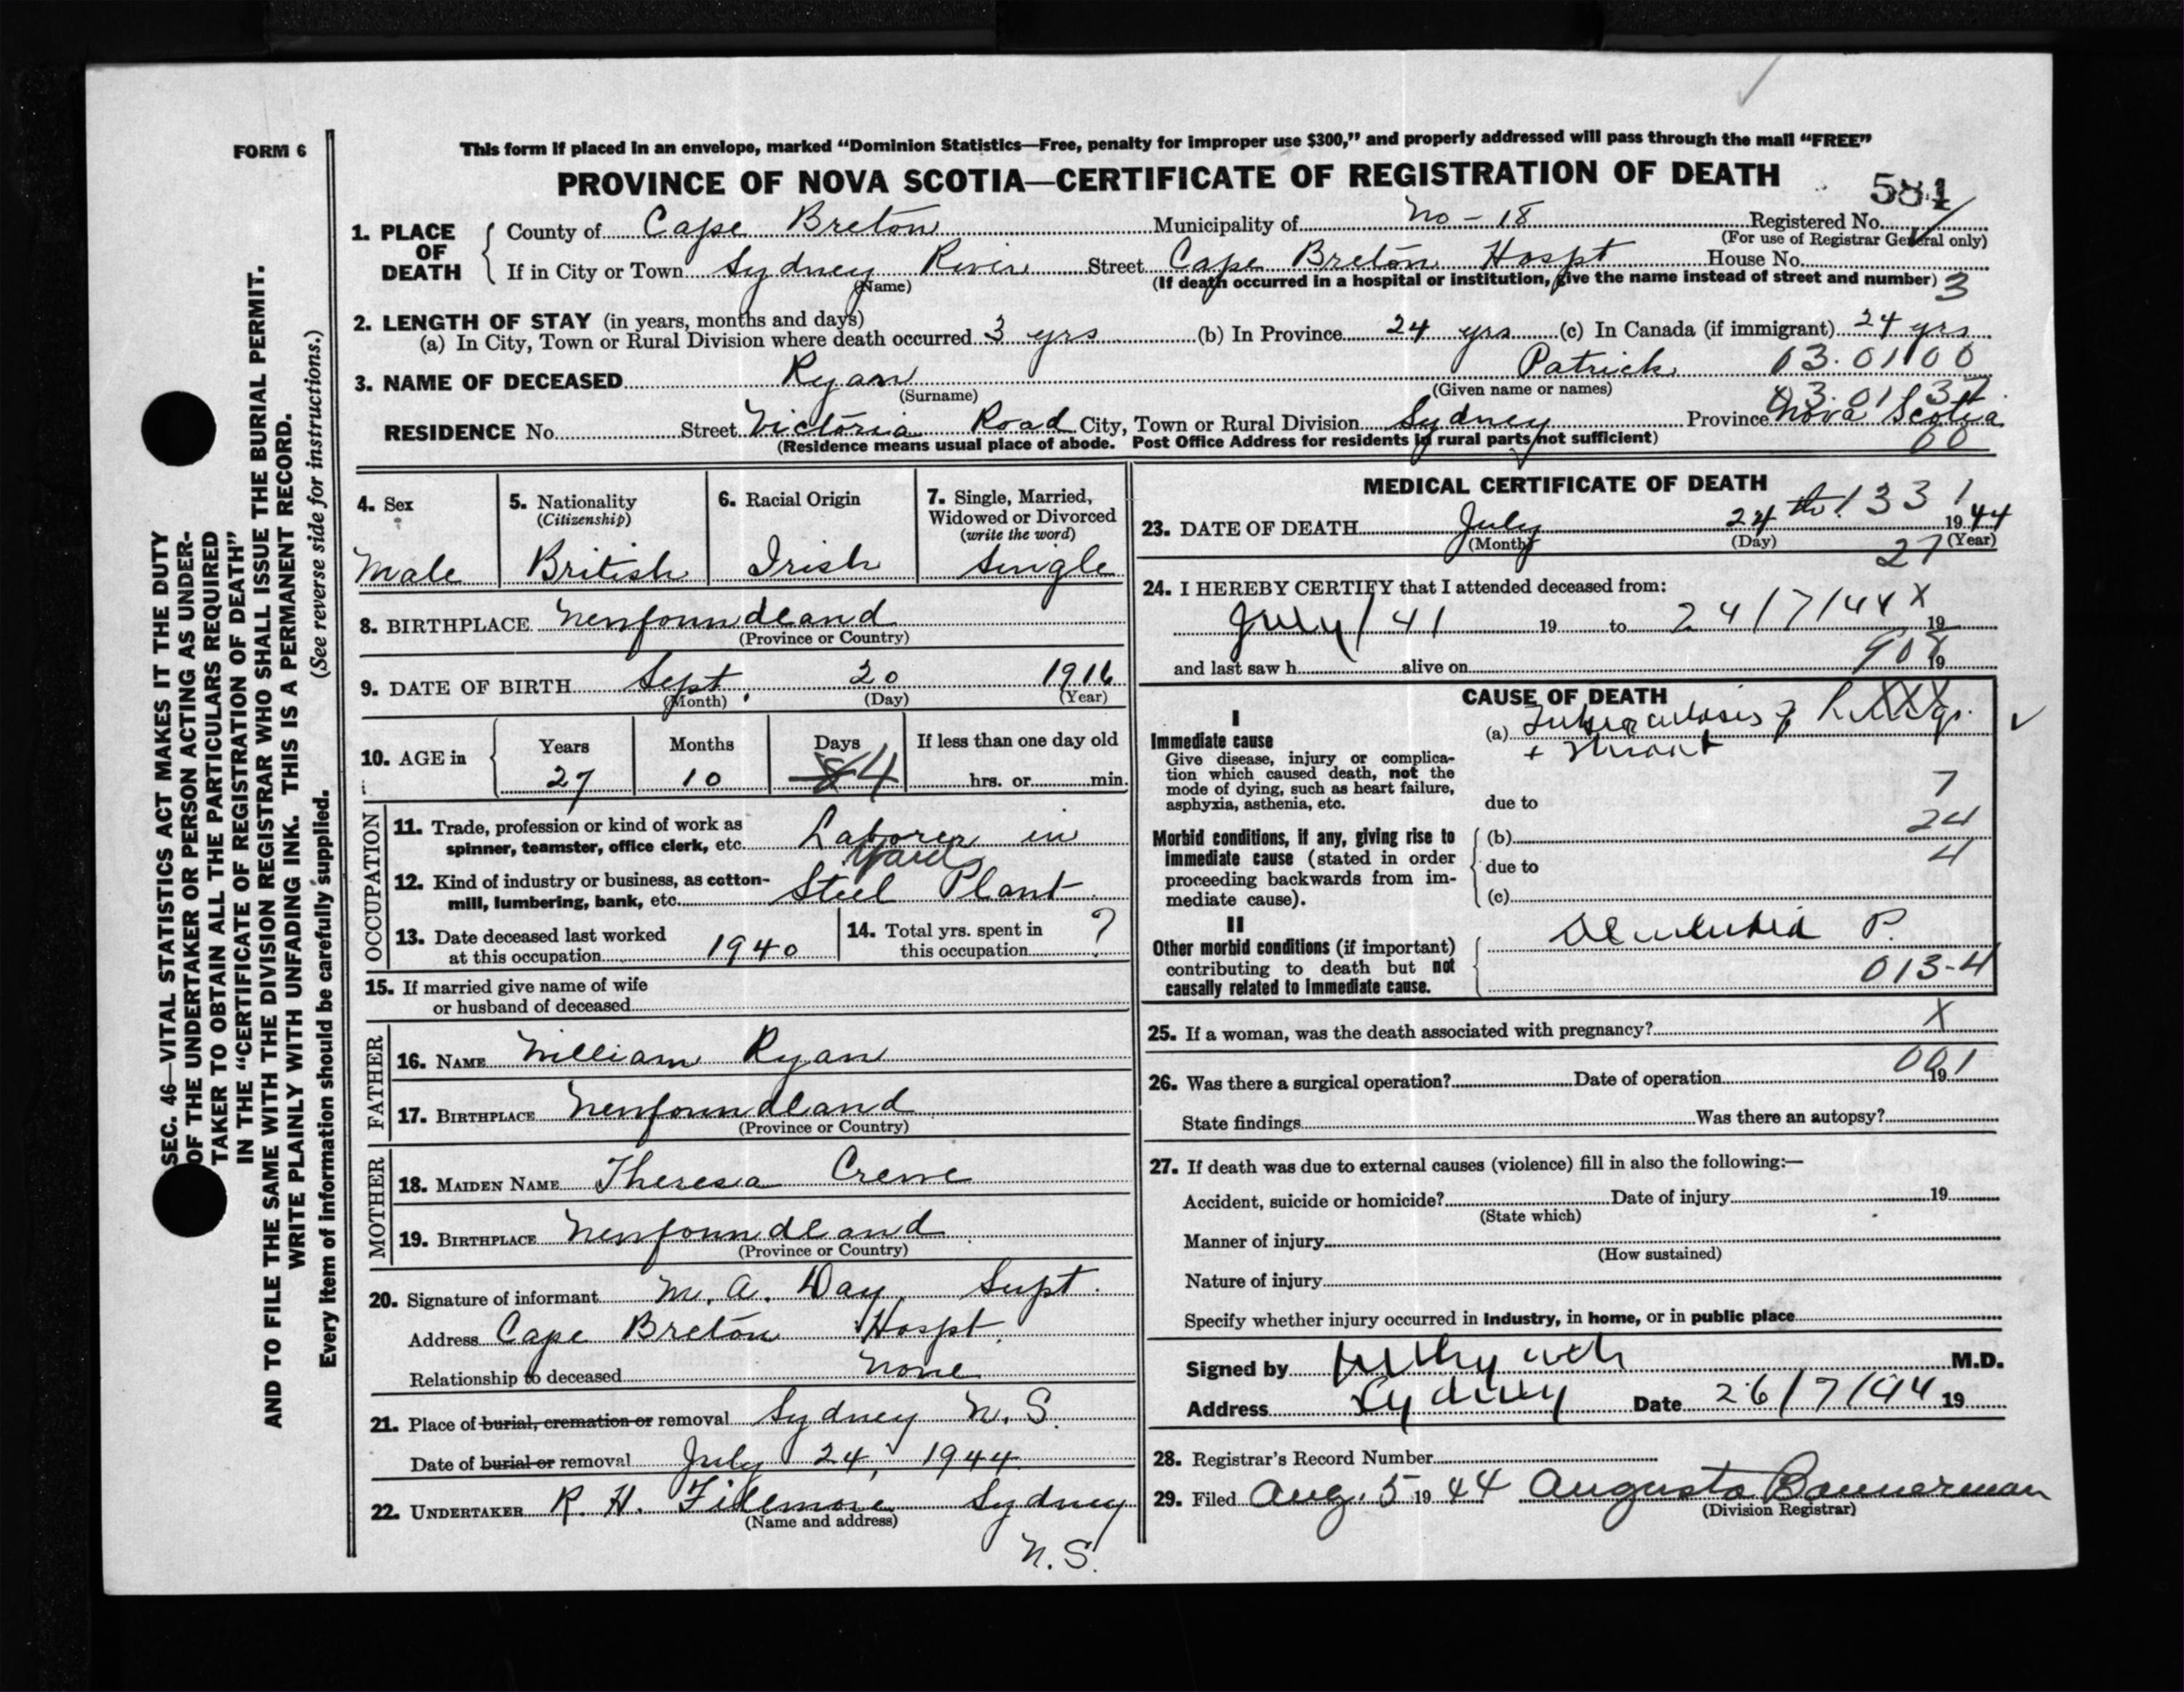 FORM 6
This form if placed in an envelope, marked “Dominion Statistics—Free, penalty for improper use $300,” and properly addressed will pass through the mail “FREE”
PROVINCE OF NOVA SCOTIA—CERTIFICATE OF REGISTRATION OF DEATH
584
1. PLACE OF DEATH
County of Cape Breton Municipality of No - 18 Registered No.
(For use of Registrar General only)
If in City or Town Sydney River Street Cape Breton Hospt House No.
(Name) (If death occurred in a hospital or institution, give the name instead of street and number) 3
2. LENGTH OF STAY (in years, months and days)
(a) In City, Town or Rural Division where death occurred 3 yrs (b) In Province 24 yrs (c) In Canada (if immigrant) 24 yrs
3. NAME OF DECEASED Ryan Patrick 03.01100
(Surname) (Given name or names) 03.0137
RESIDENCE No. Street Victoria Road City, Town or Rural Division Sydney Province Nova Scotia
(Residence means usual place of abode. Post Office Address for residents in rural parts not sufficient) 00
4. Sex
Male
5. Nationality
(Citizenship)
British
6. Racial Origin
Irish
7. Single, Married,
Widowed or Divorced
(write the word)
Single
8. BIRTHPLACE Newfoundland
(Province or Country)
9. DATE OF BIRTH Sept. 20 1916
(Month) (Day) (Year)
10. AGE in
Years Months Days If less than one day old
27 10 4 hrs. or min.
OCCUPATION
11. Trade, profession or kind of work as
spinner, teamster, office clerk, etc. Laborer in
Yard
12. Kind of industry or business, as cotton-
mill, lumbering, bank, etc. Steel Plant
13. Date deceased last worked
at this occupation 1940
14. Total yrs. spent in
this occupation ?
15. If married give name of wife
or husband of deceased
FATHER
16. NAME William Ryan
17. BIRTHPLACE Newfoundland
(Province or Country)
MOTHER
18. MAIDEN NAME Theresa Crewe
19. BIRTHPLACE Newfoundland
(Province or Country)
20. Signature of informant M. A. Day Supt.
Address Cape Breton Hospt.
Relationship to deceased None
21. Place of burial, cremation or removal Sydney N.S.
Date of burial or removal July 24, 1944
22. UNDERTAKER R. H. Fillmore Sydney
(Name and address)
N.S.
MEDICAL CERTIFICATE OF DEATH
23. DATE OF DEATH July 24 th 1331 1944
(Month) (Day) (Year)
27
24. I HEREBY CERTIFY that I attended deceased from:
July/41 19 to 24/7/44 X 19
and last saw h alive on 908 19
CAUSE OF DEATH
I
Immediate cause
Give disease, injury or complica-
tion which caused death, not the
mode of dying, such as heart failure,
asphyxia, asthenia, etc.
(a) Tuberculosis of Lungs
+ Throat
7
due to
24
Morbid conditions, if any, giving rise to
immediate cause (stated in order
proceeding backwards from im-
mediate cause).
(b)
4
due to
(c)
II
Other morbid conditions (if important)
contributing to death but not
causally related to immediate cause.
Dementia P.
013-4
25. If a woman, was the death associated with pregnancy? X
26. Was there a surgical operation? Date of operation 19
001
State findings Was there an autopsy?
27. If death was due to external causes (violence) fill in also the following:—
Accident, suicide or homicide? Date of injury 19
(State which)
Manner of injury
(How sustained)
Nature of injury
Specify whether injury occurred in Industry, in home, or in public place
Signed by M.D.
Address Sydney Date 26/7/44 19
28. Registrar's Record Number
29. Filed Aug. 5 1944 Augusta Bannerman
(Division Registrar)
SEC. 46—VITAL STATISTICS ACT MAKES IT THE DUTY
OF THE UNDERTAKER OR PERSON ACTING AS UNDER-
TAKER TO OBTAIN ALL THE PARTICULARS REQUIRED
IN THE “CERTIFICATE OF REGISTRATION OF DEATH”
AND TO FILE THE SAME WITH THE DIVISION REGISTRAR WHO SHALL ISSUE THE BURIAL PERMIT.
WRITE PLAINLY WITH UNFADING INK. THIS IS A PERMANENT RECORD.
Every item of information should be carefully supplied. (See reverse side for instructions.)